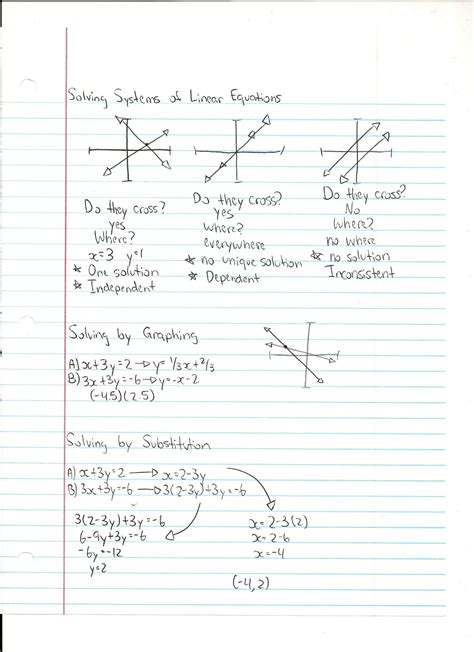 Solving Systems of Linear Equations
Do they cross?
yes
Where?
x=3 y=1
* One solution
* Independent
Do they cross?
yes
Where?
everywhere
* no unique solution
* Dependent
Do they cross?
No
Where?
no where
* no solution
Inconsistent
Solving by Graphing
A) x+3y=2 → y=1/3x+2/3
B) 3x+3y=-6 → y=-x-2
(-4.5)(2.5)
Solving by Substitution
A) x+3y=2 → x=2-3y
B) 3x+3y=-6 → 3(2-3y)+3y=-6
3(2-3y)+3y=-6
6-9y+3y=-6
-6y=-12
y=2
x=2-3(2)
x=2-6
x=-4
(-4,2)